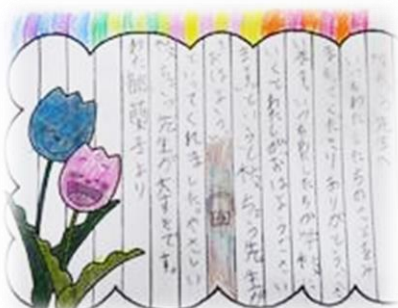 先生へ
いつもわたしたちのことをみ
まもってくださりありがとうござ
います。いつもわたしたちが学校に
いくとわたしがおはようござい
ますというと校ちょう先生が
おはよう
といってくれました。やさしい
校ちょう先生が大すきです。
より